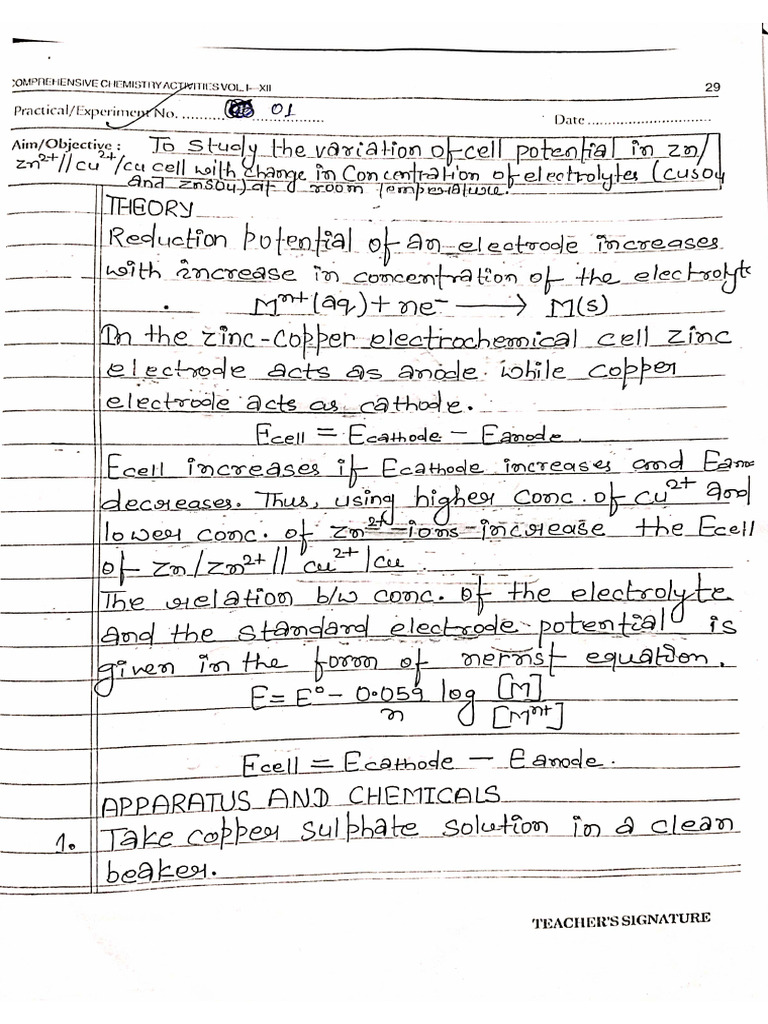 COMPREHENSIVE CHEMISTRY ACTIVITIES VOL. I- XII 29
Practical/Experiment No. .......... 01 ..........
Date ..............................
Aim/Objective : To study the variation of cell potential in zn/
zn²⁺//cu²⁺/cu cell with change in concentration of electrolytes (cuso4
and znso4) at room temperature.
THEORY
Reduction potential of an electrode increases
with increase in concentration of the electrolyte
Mⁿ⁺(aq) + ne⁻ ⟶ M(s)
In the zinc-copper electrochemical cell zinc
electrode acts as anode while copper
electrode acts as cathode.
Ecell = Ecathode – Eanode.
Ecell increases if Ecathode increases and Eano
decreases. Thus, using higher conc. of cu²⁺ and
lower conc. of zn²⁺ ions increase the Ecell
of zn/zn²⁺// cu²⁺/cu.
The relation b/w conc. of the electrolyte
and the standard electrode potential is
given in the form of nernst equation.
E = E° – 0.059/n log [M]/[Mⁿ⁺]
Ecell = Ecathode – Eanode.
APPARATUS AND CHEMICALS
1. Take copper sulphate solution in a clean
beaker.
TEACHER'S SIGNATURE